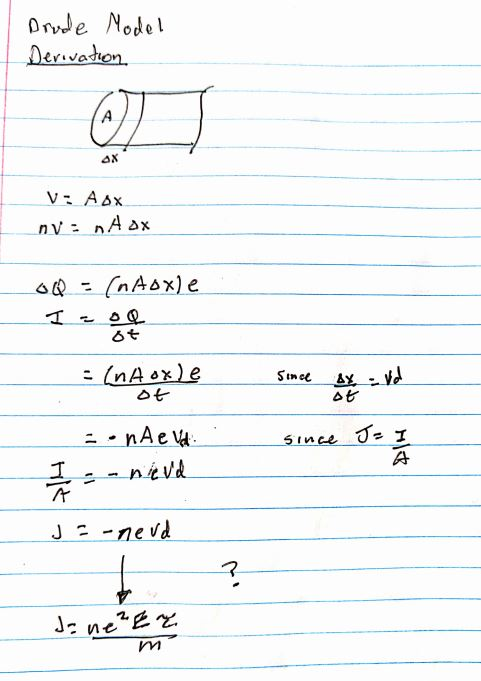 Drude Model
Derivation
A
Δx
V = AΔx
nV = nAΔx
ΔQ = (nAΔx)e
I = ΔQ/Δt
= (nAΔx)e/Δt since Δx/Δt = Vd
= -nAeVd. since J = I/A
I/A = -neVd
J = -neVd
?
J = ne²Eτ/m